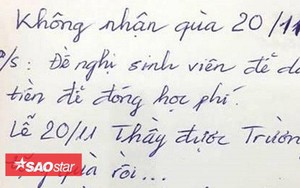 Không nhận quà 20/11
P/s: Đề nghị sinh viên để dà
tiền để đóng học phí.
Lễ 20/11 Thầy được Trườn
quà rồi...
SAOstar